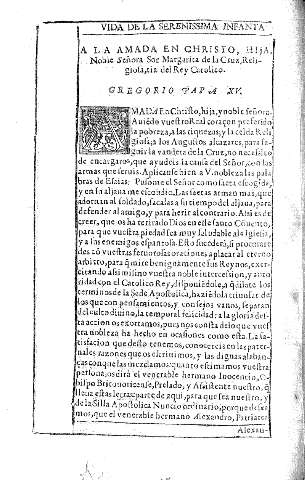 VIDA DE LA SERENISSIMA INFANTA
A LA AMADA EN CHRISTO, HIJA,
Noble Señora Sor Margarita de la Cruz, Reli-
giosa, tia del Rey Catolico.
GREGORIO PAPA XV.
AMADA En Christo, hija, y noble señora.
Aviēdo vuestro Real coraçon preferido
la pobreza, a las riquezas, y la celda Reli
giosa, a los Augustos alcazares, para se-
guir la vandera de la Cruz, no necessita
de encargaros, que ayudeis la causa del Señor, con las
armas que seruis. Aplicase bien a V. nobleza las pala
bras de Esaias: Pusome el Señor como saeta escogida,
y en su aljaua me escondio. Las saetas armas mas, que
adornan al soldado, sacalas a su tiempo del aljaua, para
defender al amigo, y para herir al contrario. Assi es de
creer, que os ha retirado Dios en esse vuestro Cōuento,
para que vuestra piedad sea muy saludable a la Iglesia,
y a las enemigos espantosa. Esto sucederá, si procurare
des cō vuestras feruorosas oraciones aplacar al eterno
arbitro, para q̃ mire benignamente sus Reynos, exer-
citando assi mismo vuestra noble intercession, y auto
ridad con el Catolico Rey, disponiēdole, q̃ dilate los
terminos de la Sede Apostolica, haziēdo la triunfar de
los que con pensamientos, y consejos vanos, separan
del culto divino, la temporal felicidad: a la gloria des-
ta accion os exortamos, pues nos consta de lo que vues
tra nobleza ha hecho en ocasiones como esta. La sa-
tisfacion que desto tenemos, conocereis en las pater-
nales razones que os escriuimos, y las dignas alaban-
ças con que las mezclamos: y quanto estimamos vuestra
persona, os dirá el venerable hermano Inocencio, O-
bispo Britonoriense, Prelado, y Assistente nuestro, q̃
lleua estas letras: parte de aqui, para que sea nuestro, y
de la Silla Apostolica Nuncio ordinario, porque dessea-
mos, que el venerable hermano Alexandro, Patriarca
Alexan-